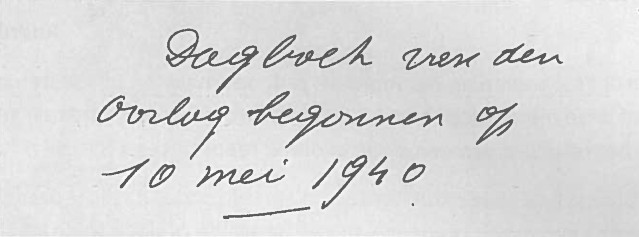 Dagboek van den
oorlog begonnen op
10 mei 1940